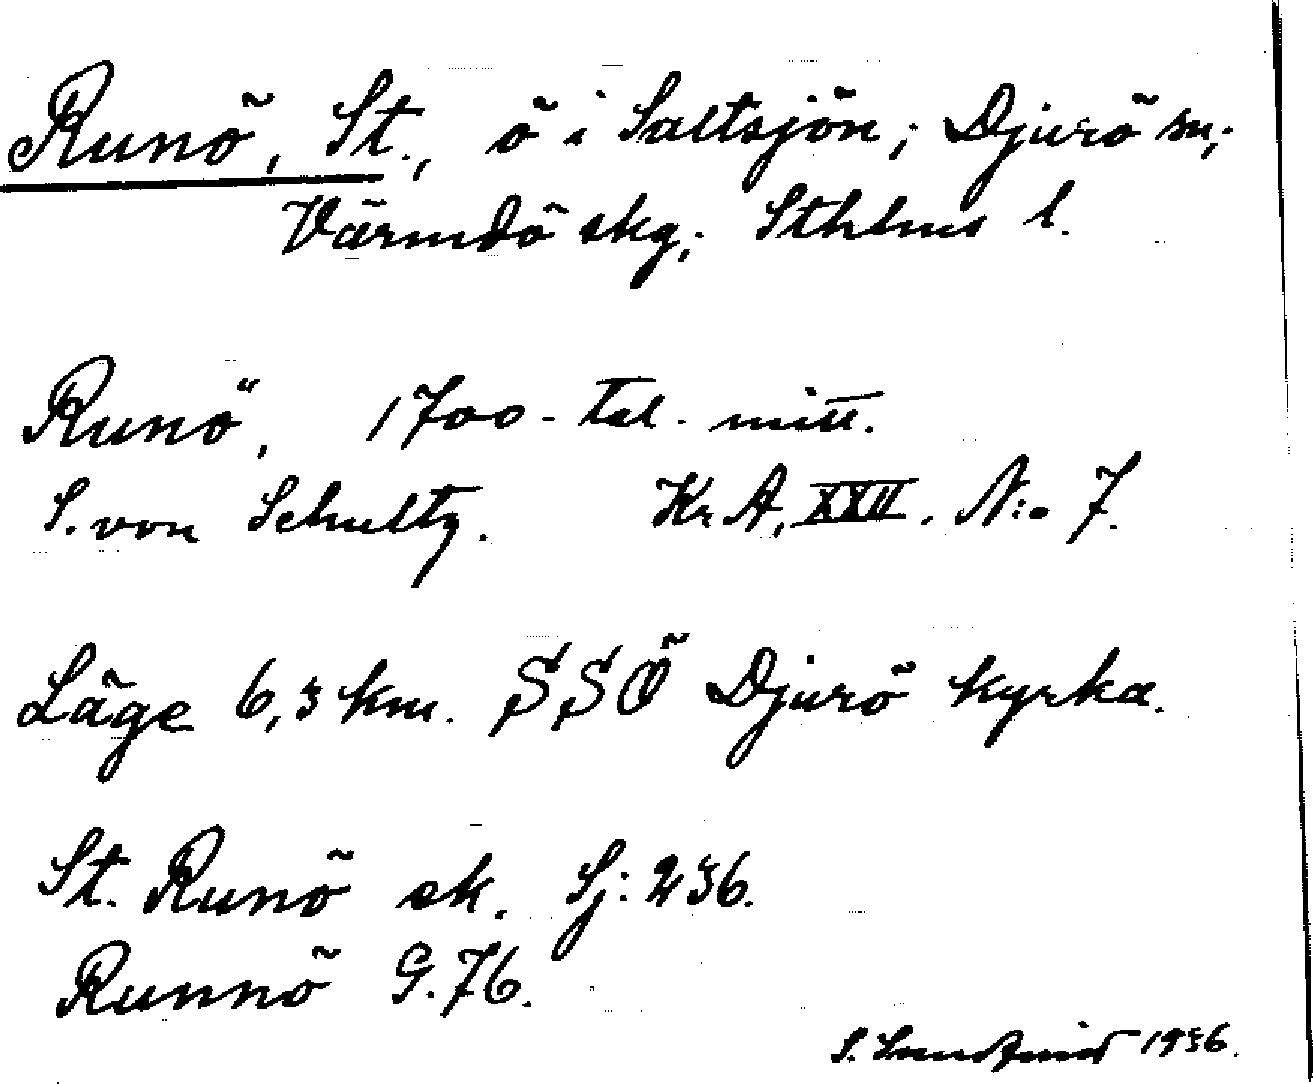 Runö, St., ö i Saltsjön; Djurö sn,
Värmdö skg; Sthlms l.
Runö, 1700-tal. mitt.
S. von Schultz. Kr A, XXII. N:o 7.
Läge 6,3 km. SSÖ Djurö kyrka.
St. Runö ek. Sj: 236.
Runnö G. 76.
S. 1936.